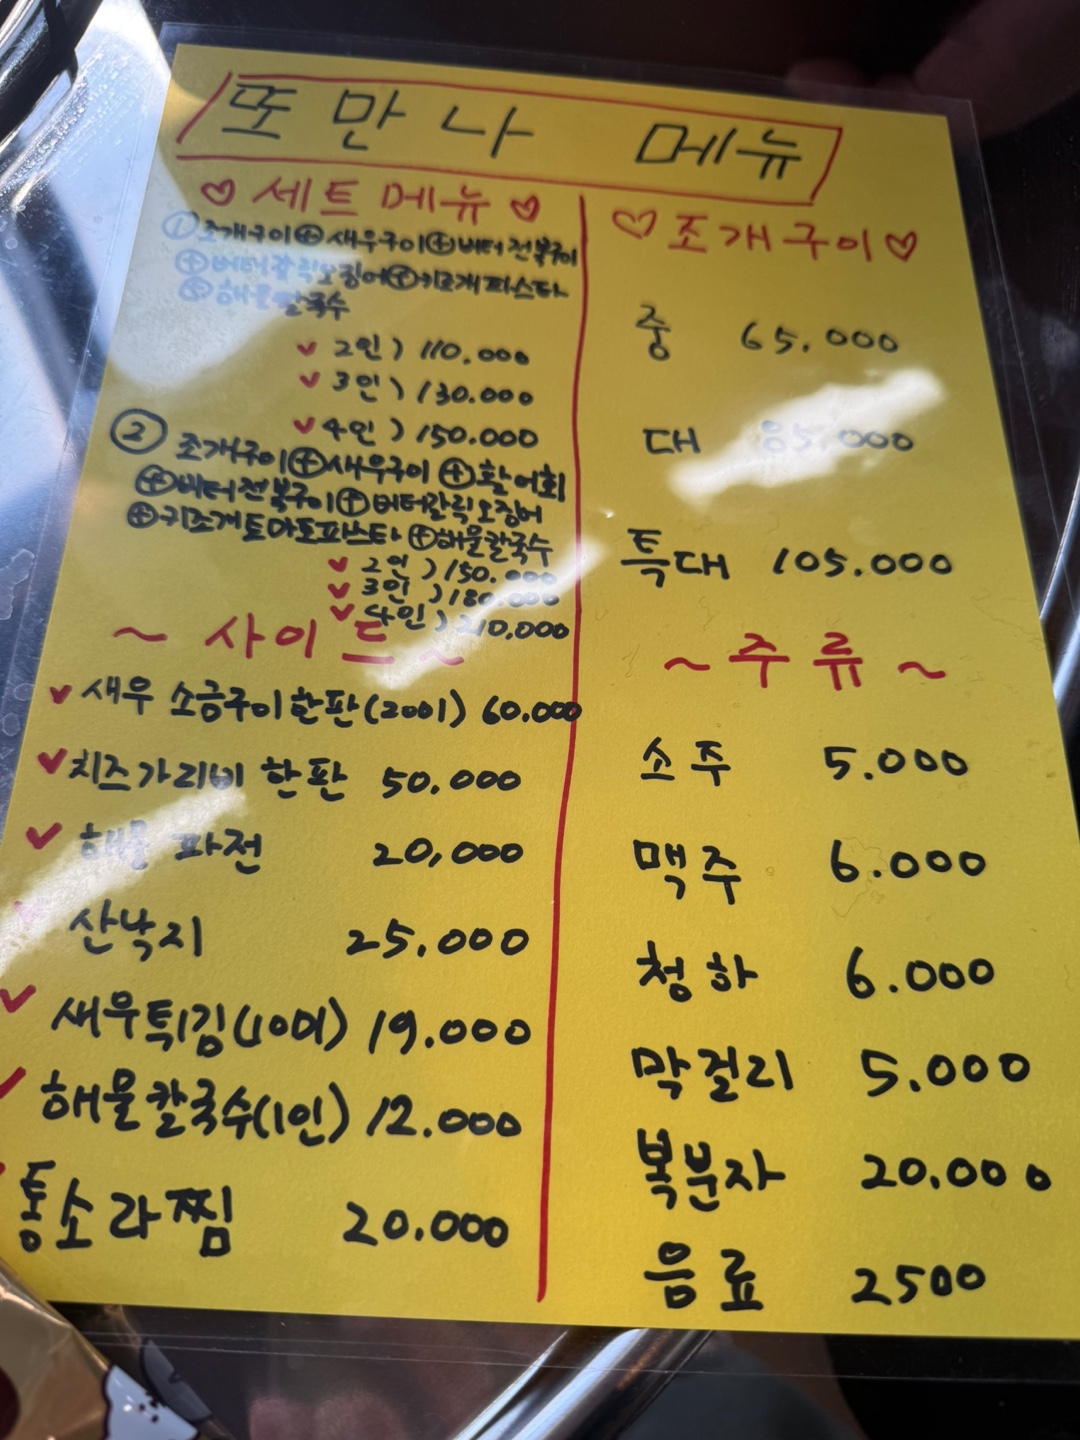 또만나 메뉴
♡세트메뉴♡
① 조개구이⊕새우구이⊕버터전복구이
⊕버터갈릭오징어⊕키조개파스타
⊕해물칼국수
✓ 2인) 110.000
✓ 3인) 130.000
✓ 4인) 150.000
② 조개구이⊕새우구이⊕활어회
⊕버터전복구이⊕버터갈릭오징어
⊕키조개토마토파스타⊕해물칼국수
✓ 2인) 150.000
✓ 3인) 180.000
✓ 4인) 210,000
~ 사이드 ~
✓ 새우 소금구이한판(20미) 60.000
✓ 치즈가리비 한판 50.000
✓ 해물 파전 20,000
✓ 산낙지 25.000
✓ 새우튀김(10미) 19.000
✓ 해물칼국수(1인) 12.000
✓ 통소라찜 20.000
♡조개구이♡
중 65.000
대 85.000
특대 105.000
~ 주류 ~
소주 5.000
맥주 6.000
청하 6.000
막걸리 5.000
복분자 20.000
음료 2500